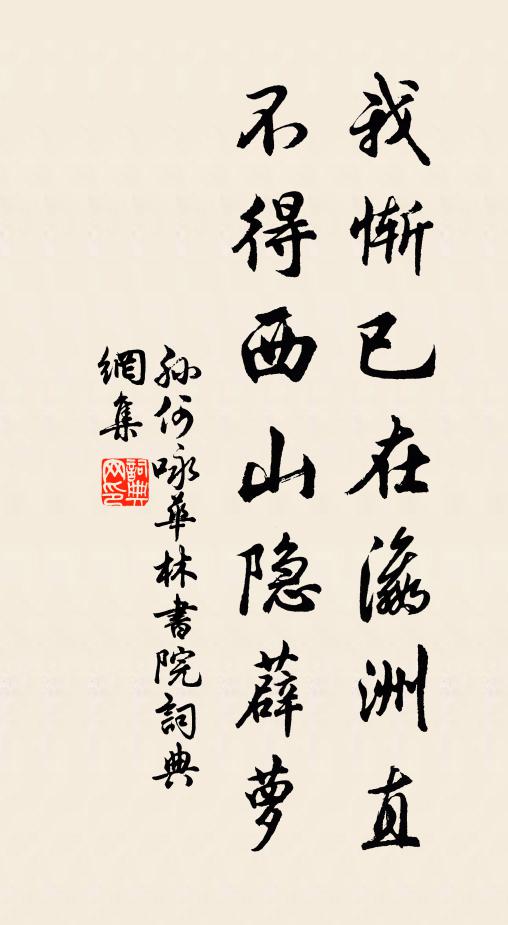 我惭已在瀛洲直
不得西山隐薜萝
孙何咏華林書院詞典
網集
詞典
网印